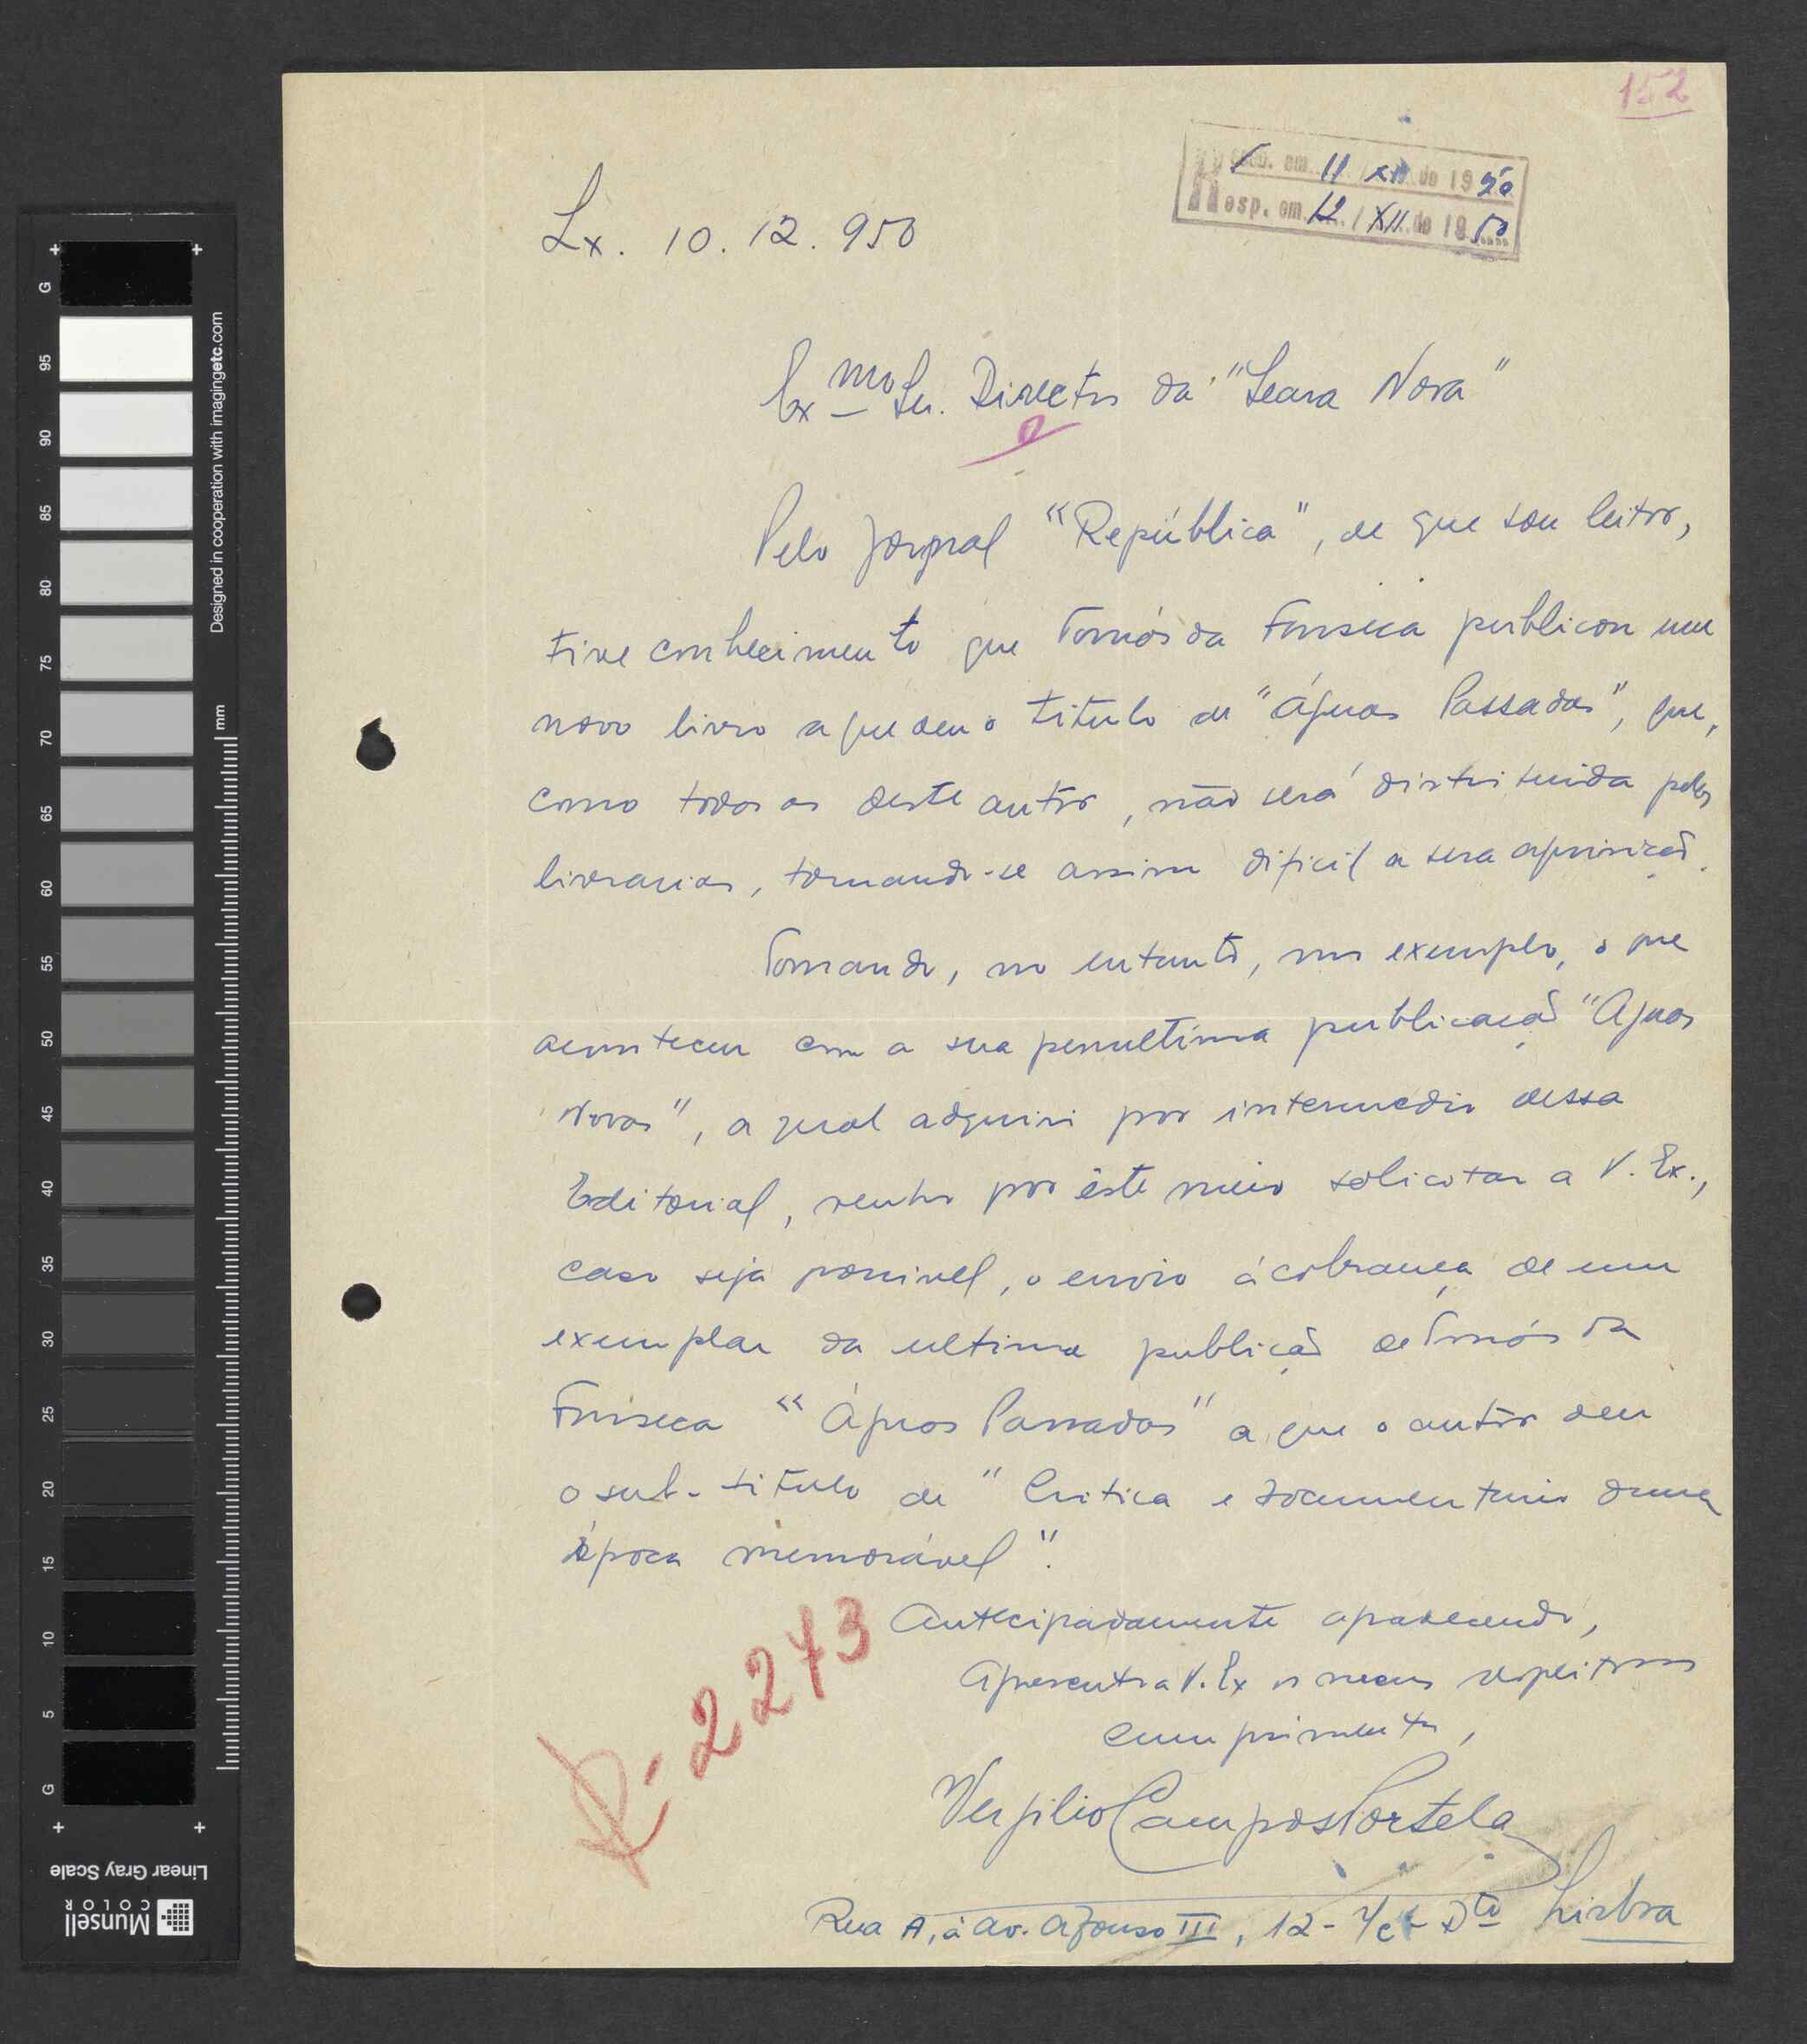 152
Receb. em 11 / XII de 1950
Resp. em 12 / XII de 1950
Lx. 10.12.950
Ex.mo Sr. Director da "Seara Nova"
Pelo jornal "República", de que sou leitor,
tive conhecimento que Tomás da Fonseca publicou um
novo livro a que deu o titulo de "Águas Passadas", que,
como todos os deste autor, não será distribuida pelas
livrarias, tornando-se assim dificil a sua aquisição.
Tomando, no entanto, por exemplo, o que
aconteceu com a sua penultima publicação "Aguas
Novas", a qual adquiri por intermedio dessa
Editorial, venho por êste meio solicitar a V. Ex.,
caso seja possivel, o envio á cobrança de um
exemplar da ultima publicão de Tomás da
Fonseca "Águas Passadas" a que o autor deu
o sub-titulo de "Critica e documentario duma
época memorável".
Antecipadamente agradecendo,
Apresento a V. Ex os meus respeitosos
cumprimentos,
Vergilio Campos Portela
Rua A, á Av. Afonso III, 12 - r/c - Dto Lisboa
R-2273
G
95
90
85
80
75
70
65
60
55
50
45
40
35
30
25
20
15
10
5
G
mm
Designed in cooperation with imagingetc.com
Linear Gray Scale
Munsell
COLOR